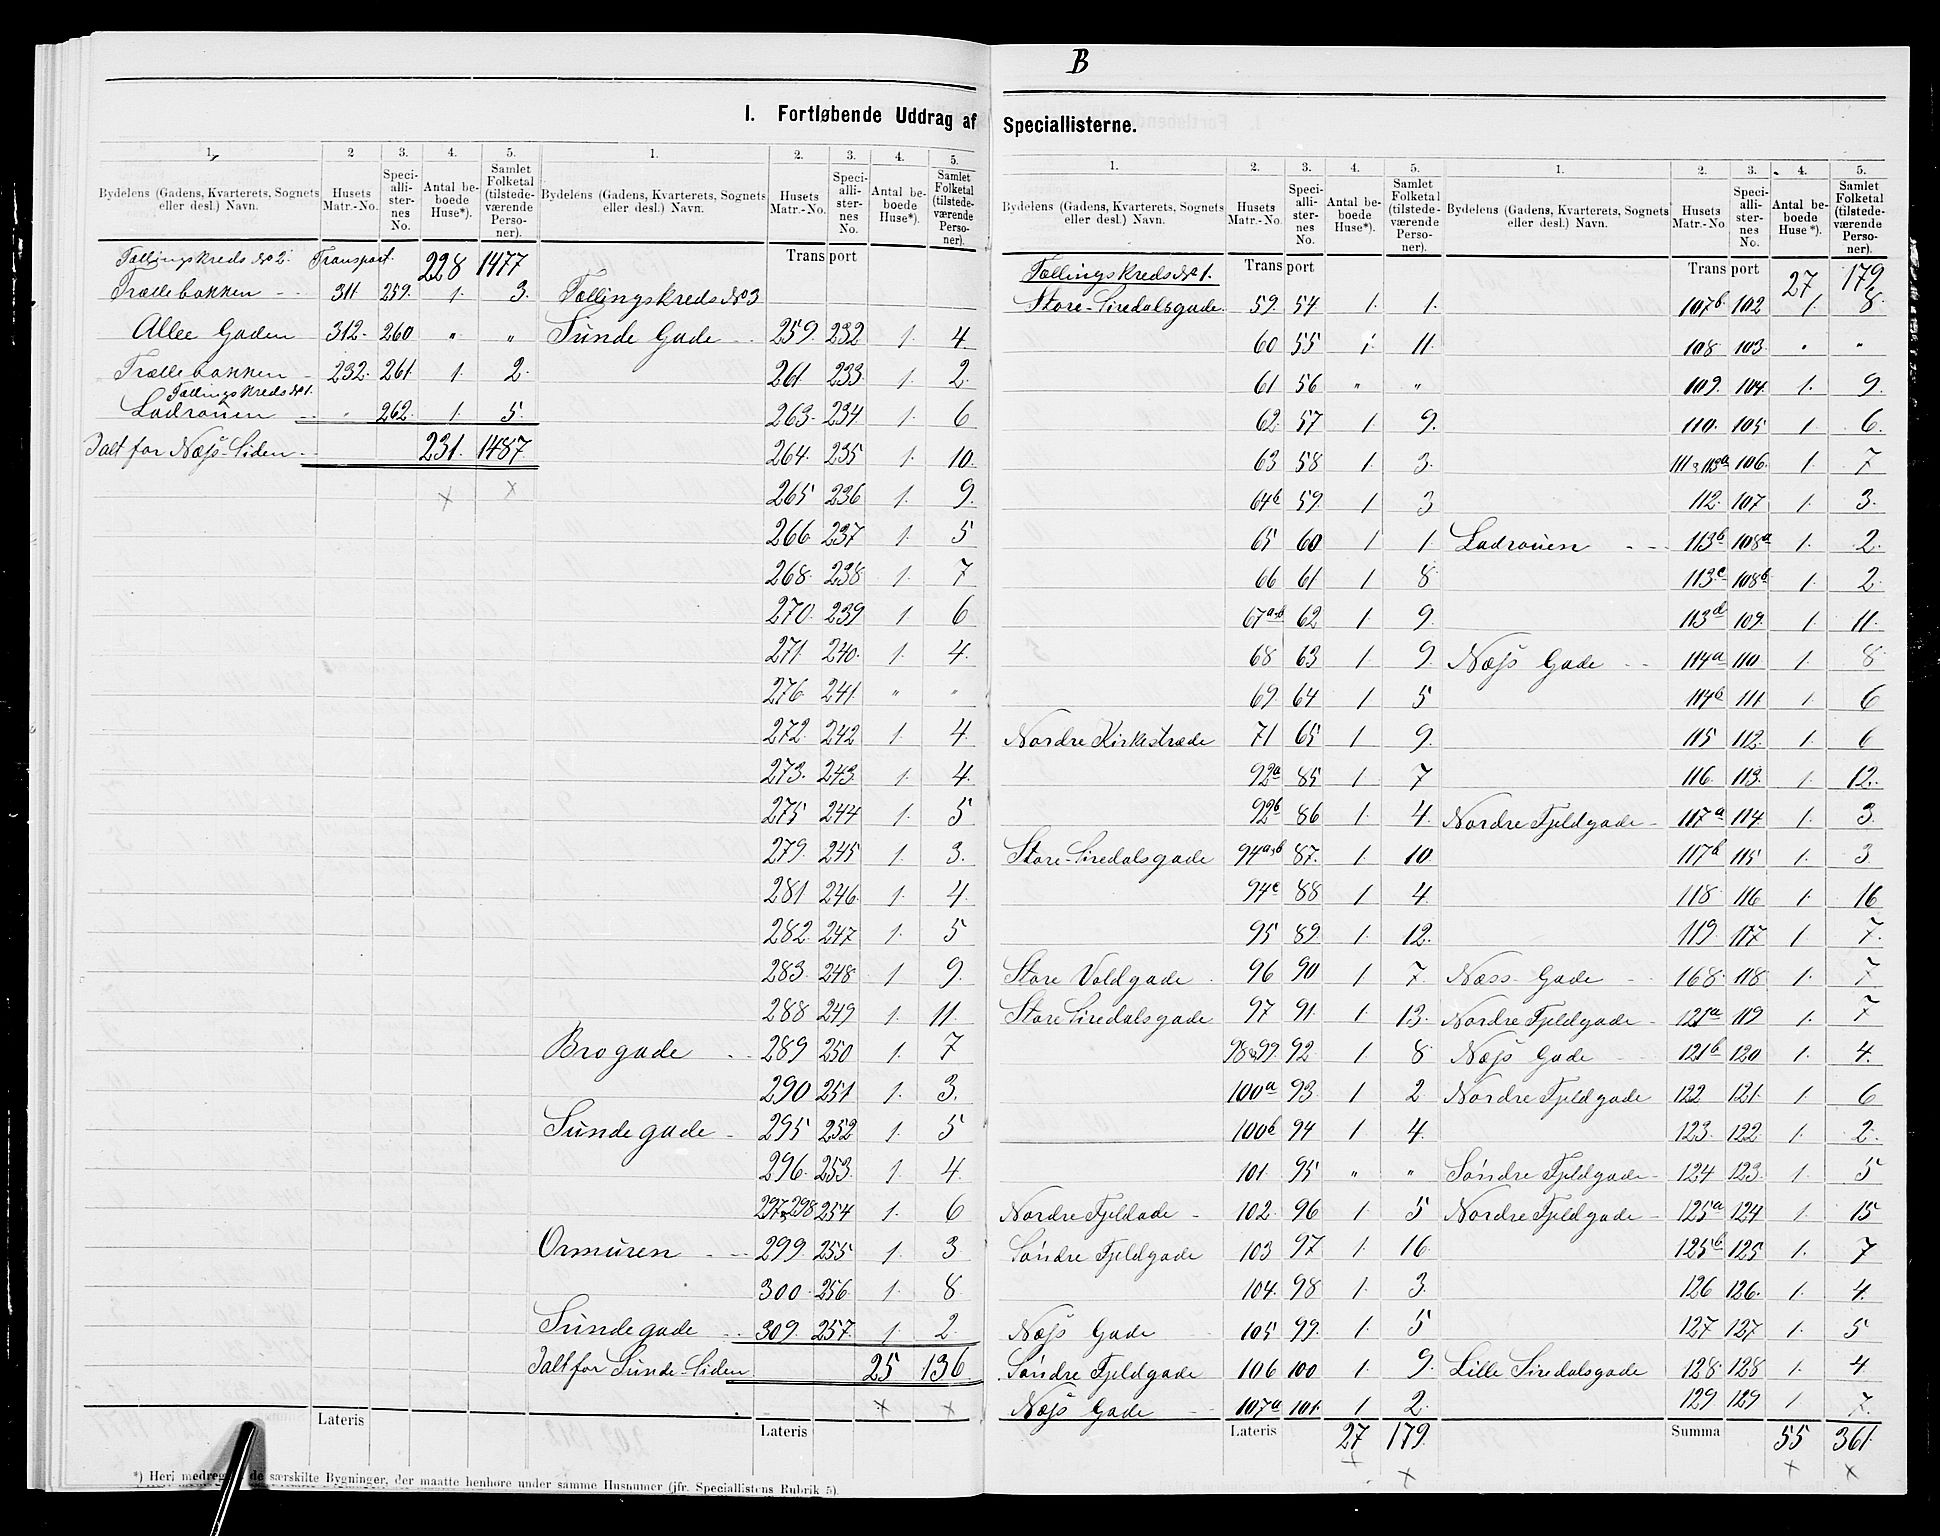 B
I. Fortløbende Uddrag af
1. 2 3. 4. 5.
Bydelens (Gadens, Kvarterets, Sognets eller desl.) Navn. Husets Matr.-No. Speciallisternes No. Antal beboede Huse*). Samlet Folketal (tilstedeværende Personer).
Tællingskreds No 2. Transport. 228 1477
Trællebakken 311 259. 1. 3.
Allee Gaden 312. 260 " "
Trællebakken 232. 261 1. 2.
Tællingskreds No 1.
Ladrouen " 262. 1. 5.
Ialt for Næss-Siden 231. 1487.
x x
Lateris
1. 2. 3. 4. 5.
Bydelens (Gadens, Kvarterets, Sognets eller desl.) Navn. Husets Matr.-No. Speciallisternes No. Antal beboede Huse*). Samlet Folketal (tilstedeværende Personer).
Transport
Tællingskreds No 3
Sunde Gade 259. 232 1. 4
261. 233. 1. 2.
263. 234 1. 6
264. 235 1. 10.
265 236 1. 9.
266 237 1. 5
268. 238. 1. 7
270. 239 1. 6
271. 240. 1. 4.
276. 241. " "
272. 242 1. 4.
273. 243. 1. 4.
275 244 1. 5
279. 245 1. 3.
281 246. 1. 4.
282. 247 1. 5
283. 248. 1. 9.
288 249 1. 11.
Brogade 289 250 1. 7
290 251 1. 3.
Sundegade 295 252 1. 5
296. 253. 1. 4
297&298 254 1. 6
Ormuren 299. 255 1. 3
300. 256. 1. 8
Sundegade 309. 257. 1. 2.
Ialt for Sunde-Siden 25 136
x x
Lateris
*) Heri medregnes de særskilte Bygninger, der maatte henhøre under samme Husnumer (jfr. Speciallistens Rubrik 5).
Speciallisterne.
1. 2. 3. 4. 5.
Bydelens (Gadens, Kvarterets, Sognets eller desl.) Navn. Husets Matr.-No. Speciallisternes No. Antal beboede Huse*). Samlet Folketal (tilstedeværende Personer).
Tællingskreds No 1. Transport
Store-Siredalsgade. 59. 54 1. 1.
60 55 1. 11.
61 56 " "
62. 57 1 9.
63 58 1. 3.
64b 59. 1 3
65 60 1 1.
66 61 1 8
67a-b 62 1 9.
68 63 1 9.
69. 64 1 5
Nordre Kirkestræde 71 65 1 9.
92a 85 1 7
92b 86 1. 4.
Store-Siredalsgade 94a&b 87. 1. 10.
94c 88 1 4.
95 89. 1. 12.
Store Voldgade 96 90 1 7.
Store Siredalsgade 97 91. 1. 13.
98&99. 92. 1 8
100a 93. 1 2
100b 94 1 4.
101. 95 " "
Nordre Fjeldade 102. 96 1. 5
Søndre Fjeldgade 103 97 1. 16.
104. 98 1. 3.
Næss Gade 105 99. 1. 5
Søndre Fjeldgade 106 100 1. 9.
Næss Gade 107a 101. 1 2.
Lateris 27 179.
x x
1. 2. 3. 4. 5.
Bydelens (Gadens, Kvarterets, Sognets eller desl.) Navn. Husets Matr.-No. Speciallisternes No. Antal beboede Huse*). Samlet Folketal (tilstedeværende Personer).
Transport 27 179
107b 102 1. 8.
108 103. " "
109. 104. 1. 9.
110. 105 1 6.
111&113a 106. 1. 7
112. 107 1. 3.
Ladrouen 113b 108a 1. 2.
113c 108b 1 2.
113d 109. 1. 11.
Næss Gade 114a 110 1. 8
114b 111. 1 6
115 112. 1. 6
116. 113. 1. 12.
Nordre Fjeldgade 117a 114. 1. 3.
117b 115 1. 3
118 116 1. 16
119. 117 1. 7.
Næss-Gade 168. 118. 1. 7
Nordre Fjeldgade 121a 119 1. 7
Næss Gade 121b 120 1. 4.
Nordre Fjeldgade 122 121. 1 6
123. 122. 1. 2.
Søndre Fjeldgade 124 123. 1. 5
Nordre Fjeldgade 125a 124 1. 15
125b 125 1. 7
126 126. 1. 4.
127 127 1. 5
Lille Siredalsgade 128. 128 1. 4
129 129 1 7.
Summa 55 361.
x x